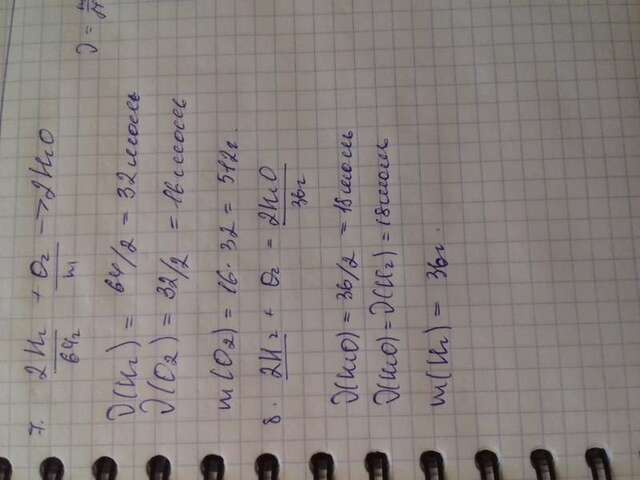 7. 2H₂ + O₂ → 2H₂O
64г m
ν = m/M
ν(H₂) = 64/2 = 32 моль
ν(O₂) = 32/2 = 16 моль
m(O₂) = 16 · 32 = 512г.
8. 2H₂ + O₂ = 2H₂O
36г
ν(H₂O) = 36/2 = 18 моль
ν(H₂O) = ν(H₂) = 18 моль
m(H₂) = 36г.